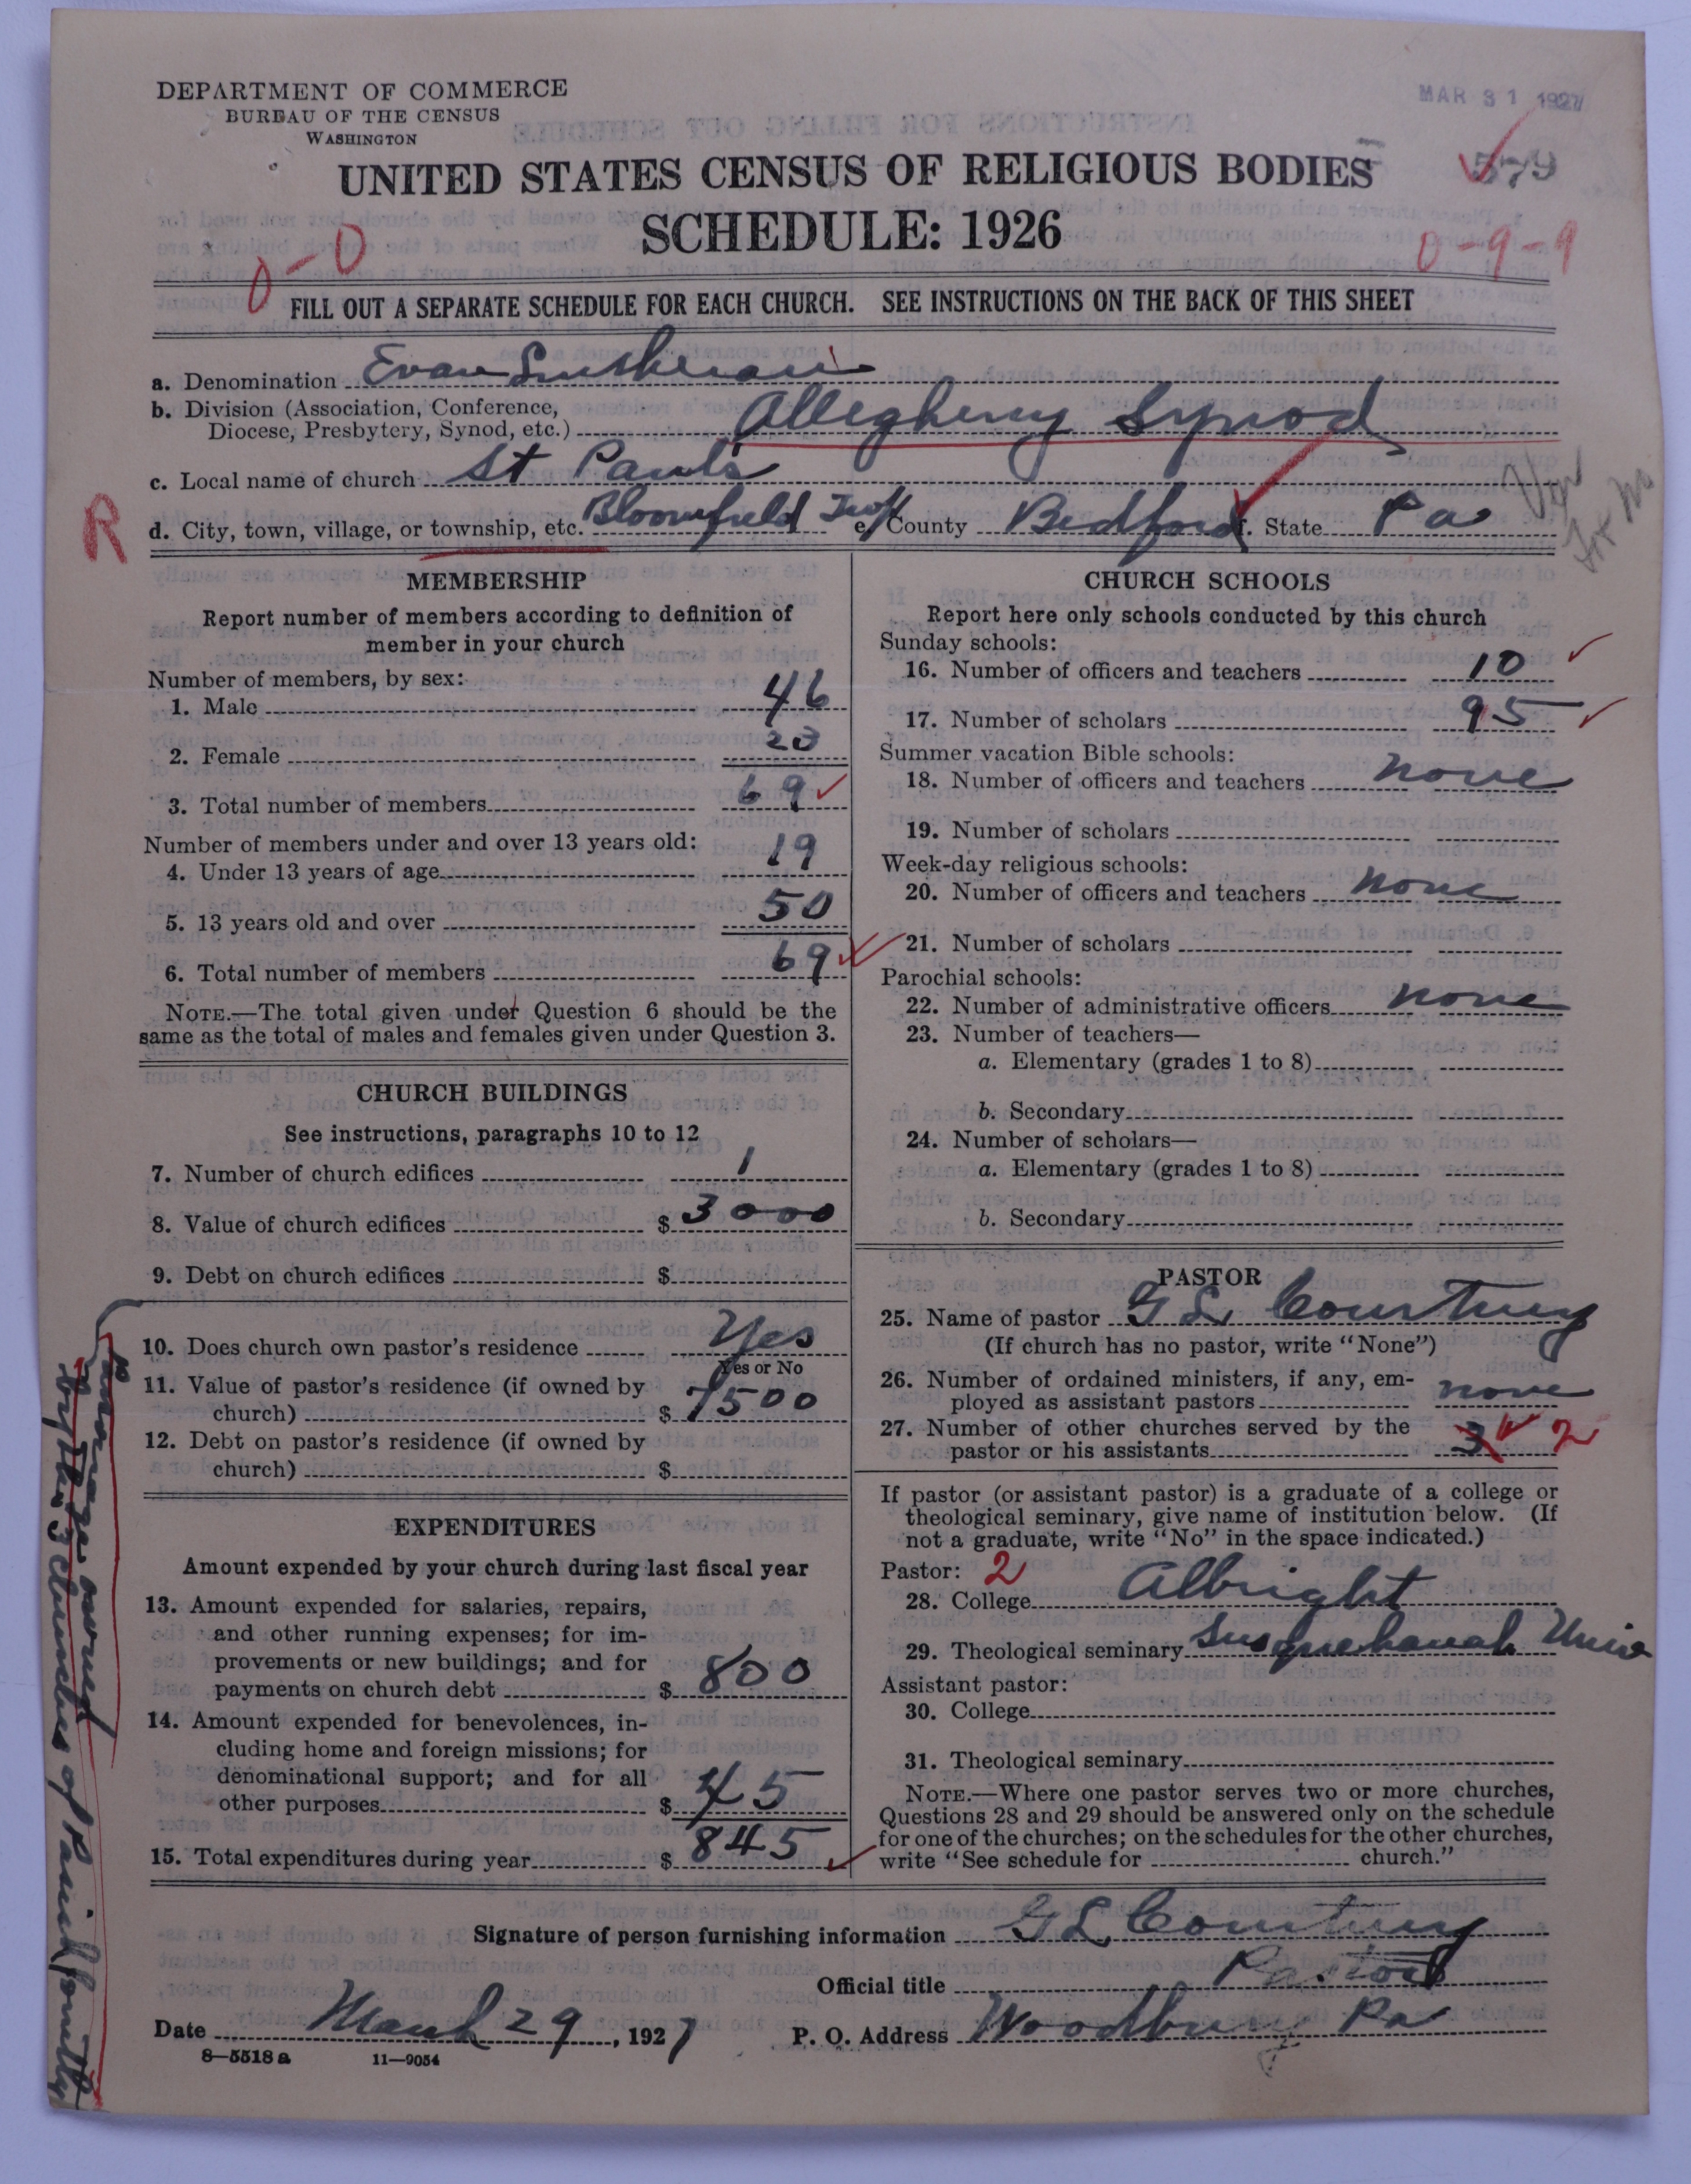 DEPARTMENT OF COMMERCE
BUREAU OF THE CENSUS
WASHINGTON
MAR 31 1927
UNITED STATES CENSUS OF RELIGIOUS BODIES
579
SCHEDULE: 1926
0-0
0-9-9
FILL OUT A SEPARATE SCHEDULE FOR EACH CHURCH. SEE INSTRUCTIONS ON THE BACK OF THIS SHEET
a. Denomination Evan Lutheran
b. Division (Association, Conference,
Diocese, Presbytery, Synod, etc.) Allegheny Synod
c. Local name of church St Paul's
R
d. City, town, village, or township, etc. Bloomfield Twp e. County Bedford f. State Pa
MEMBERSHIP
Report number of members according to definition of
member in your church
Number of members, by sex:
1. Male 46
2. Female 23
3. Total number of members 69
Number of members under and over 13 years old:
4. Under 13 years of age 19
5. 13 years old and over 50
6. Total number of members 69
NOTE.—The total given under Question 6 should be the
same as the total of males and females given under Question 3.
CHURCH BUILDINGS
See instructions, paragraphs 10 to 12
7. Number of church edifices 1
8. Value of church edifices $ 3000
9. Debt on church edifices $
10. Does church own pastor's residence Yes
Yes or No
11. Value of pastor's residence (if owned by
church) $ 7500
12. Debt on pastor's residence (if owned by
church) $
Parsonage owned
by the 3 churches of Parish jointly
EXPENDITURES
Amount expended by your church during last fiscal year
13. Amount expended for salaries, repairs,
and other running expenses; for im-
provements or new buildings; and for
payments on church debt $ 800
14. Amount expended for benevolences, in-
cluding home and foreign missions; for
denominational support; and for all
other purposes $ 45
15. Total expenditures during year $ 845
CHURCH SCHOOLS
Report here only schools conducted by this church
Sunday schools:
16. Number of officers and teachers 10
17. Number of scholars 95
Summer vacation Bible schools:
18. Number of officers and teachers none
19. Number of scholars
Week-day religious schools:
20. Number of officers and teachers none
21. Number of scholars
Parochial schools:
22. Number of administrative officers none
23. Number of teachers—
a. Elementary (grades 1 to 8)
b. Secondary
24. Number of scholars—
a. Elementary (grades 1 to 8)
b. Secondary
PASTOR
25. Name of pastor G L Courtney
(If church has no pastor, write "None")
26. Number of ordained ministers, if any, em-
ployed as assistant pastors none
27. Number of other churches served by the
pastor or his assistants 3 2
If pastor (or assistant pastor) is a graduate of a college or
theological seminary, give name of institution below. (If
not a graduate, write "No" in the space indicated.)
Pastor: 2
28. College Albright
29. Theological seminary Susquehanah Univ
Assistant pastor:
30. College
31. Theological seminary
NOTE.—Where one pastor serves two or more churches,
Questions 28 and 29 should be answered only on the schedule
for one of the churches; on the schedules for the other churches,
write "See schedule for church."
Signature of person furnishing information G L Courtney
Official title Pastor
Date March 29, 1927 P. O. Address Woodbury Pa
8—5518 a 11—9054